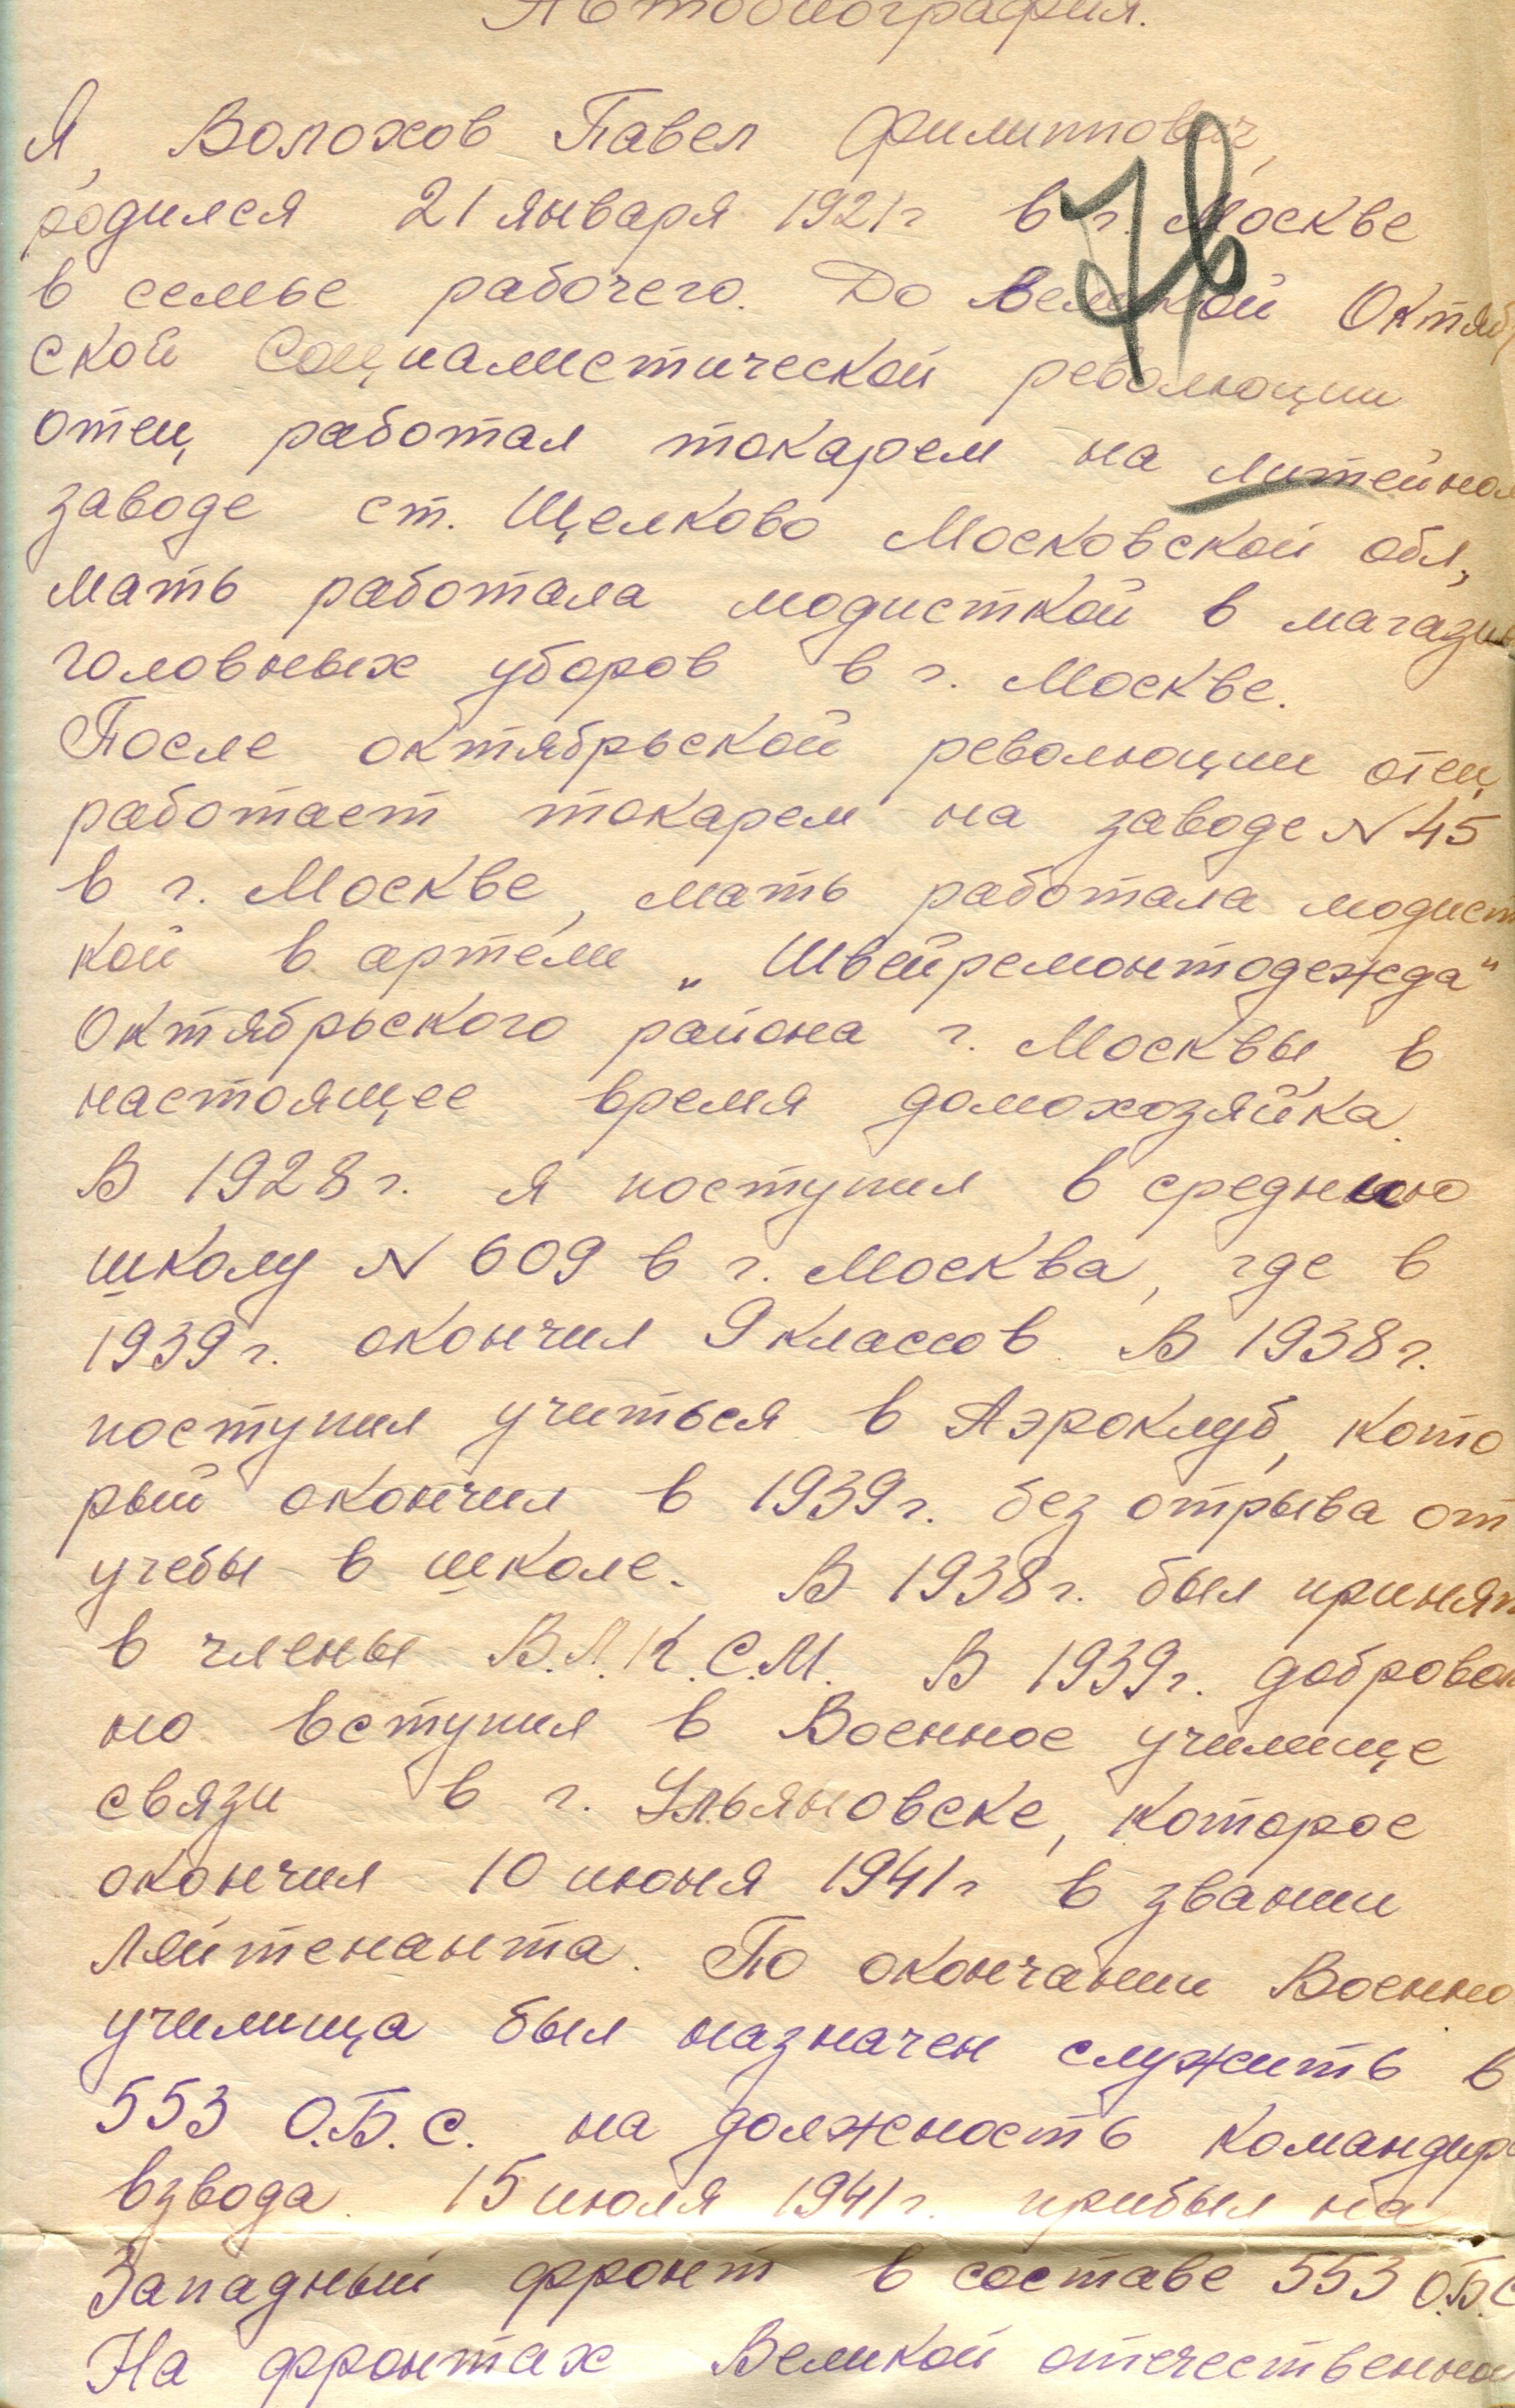 Автобиография.
Я, Волохов Павел Филиппович,
родился 21 января 1921 г в г. Москве
в семье рабочего. До Великой Октябр
ской Социалистической революции
отец работал токарем на литейном
заводе ст. Щелково Московской обл,
мать работала модисткой в магазин
головных уборов в г. Москве.
После октябрьской революции отец
работает токарем на заводе N 45
в г. Москве, мать работала модист
кой в артели „Швейремонтодежда"
Октябрьского района г. Москвы, в
настоящее время домохозяйка.
В 1928 г. я поступил в среднюю
школу N 609 в г. Москва, где в
1939 г. окончил 9 классов. В 1938 г.
поступил учиться в Аэроклуб, кото
рый окончил в 1939 г. без отрыва от
учебы в школе. В 1938 г. был принят
в члены В.Л.К.С.М. В 1939 г. добровол
но вступил в Военное училище
связи в г. Ульяновске, которое
окончил 10 июня 1941 г в звании
лейтенанта. По окончании Военно
училища был назначен служить в
553 О.Б.С. на должность командира
взвода. 15 июля 1941 г. прибыл на
Западный фронт в составе 553 О.Б.С
На фронтах Великой отечественной